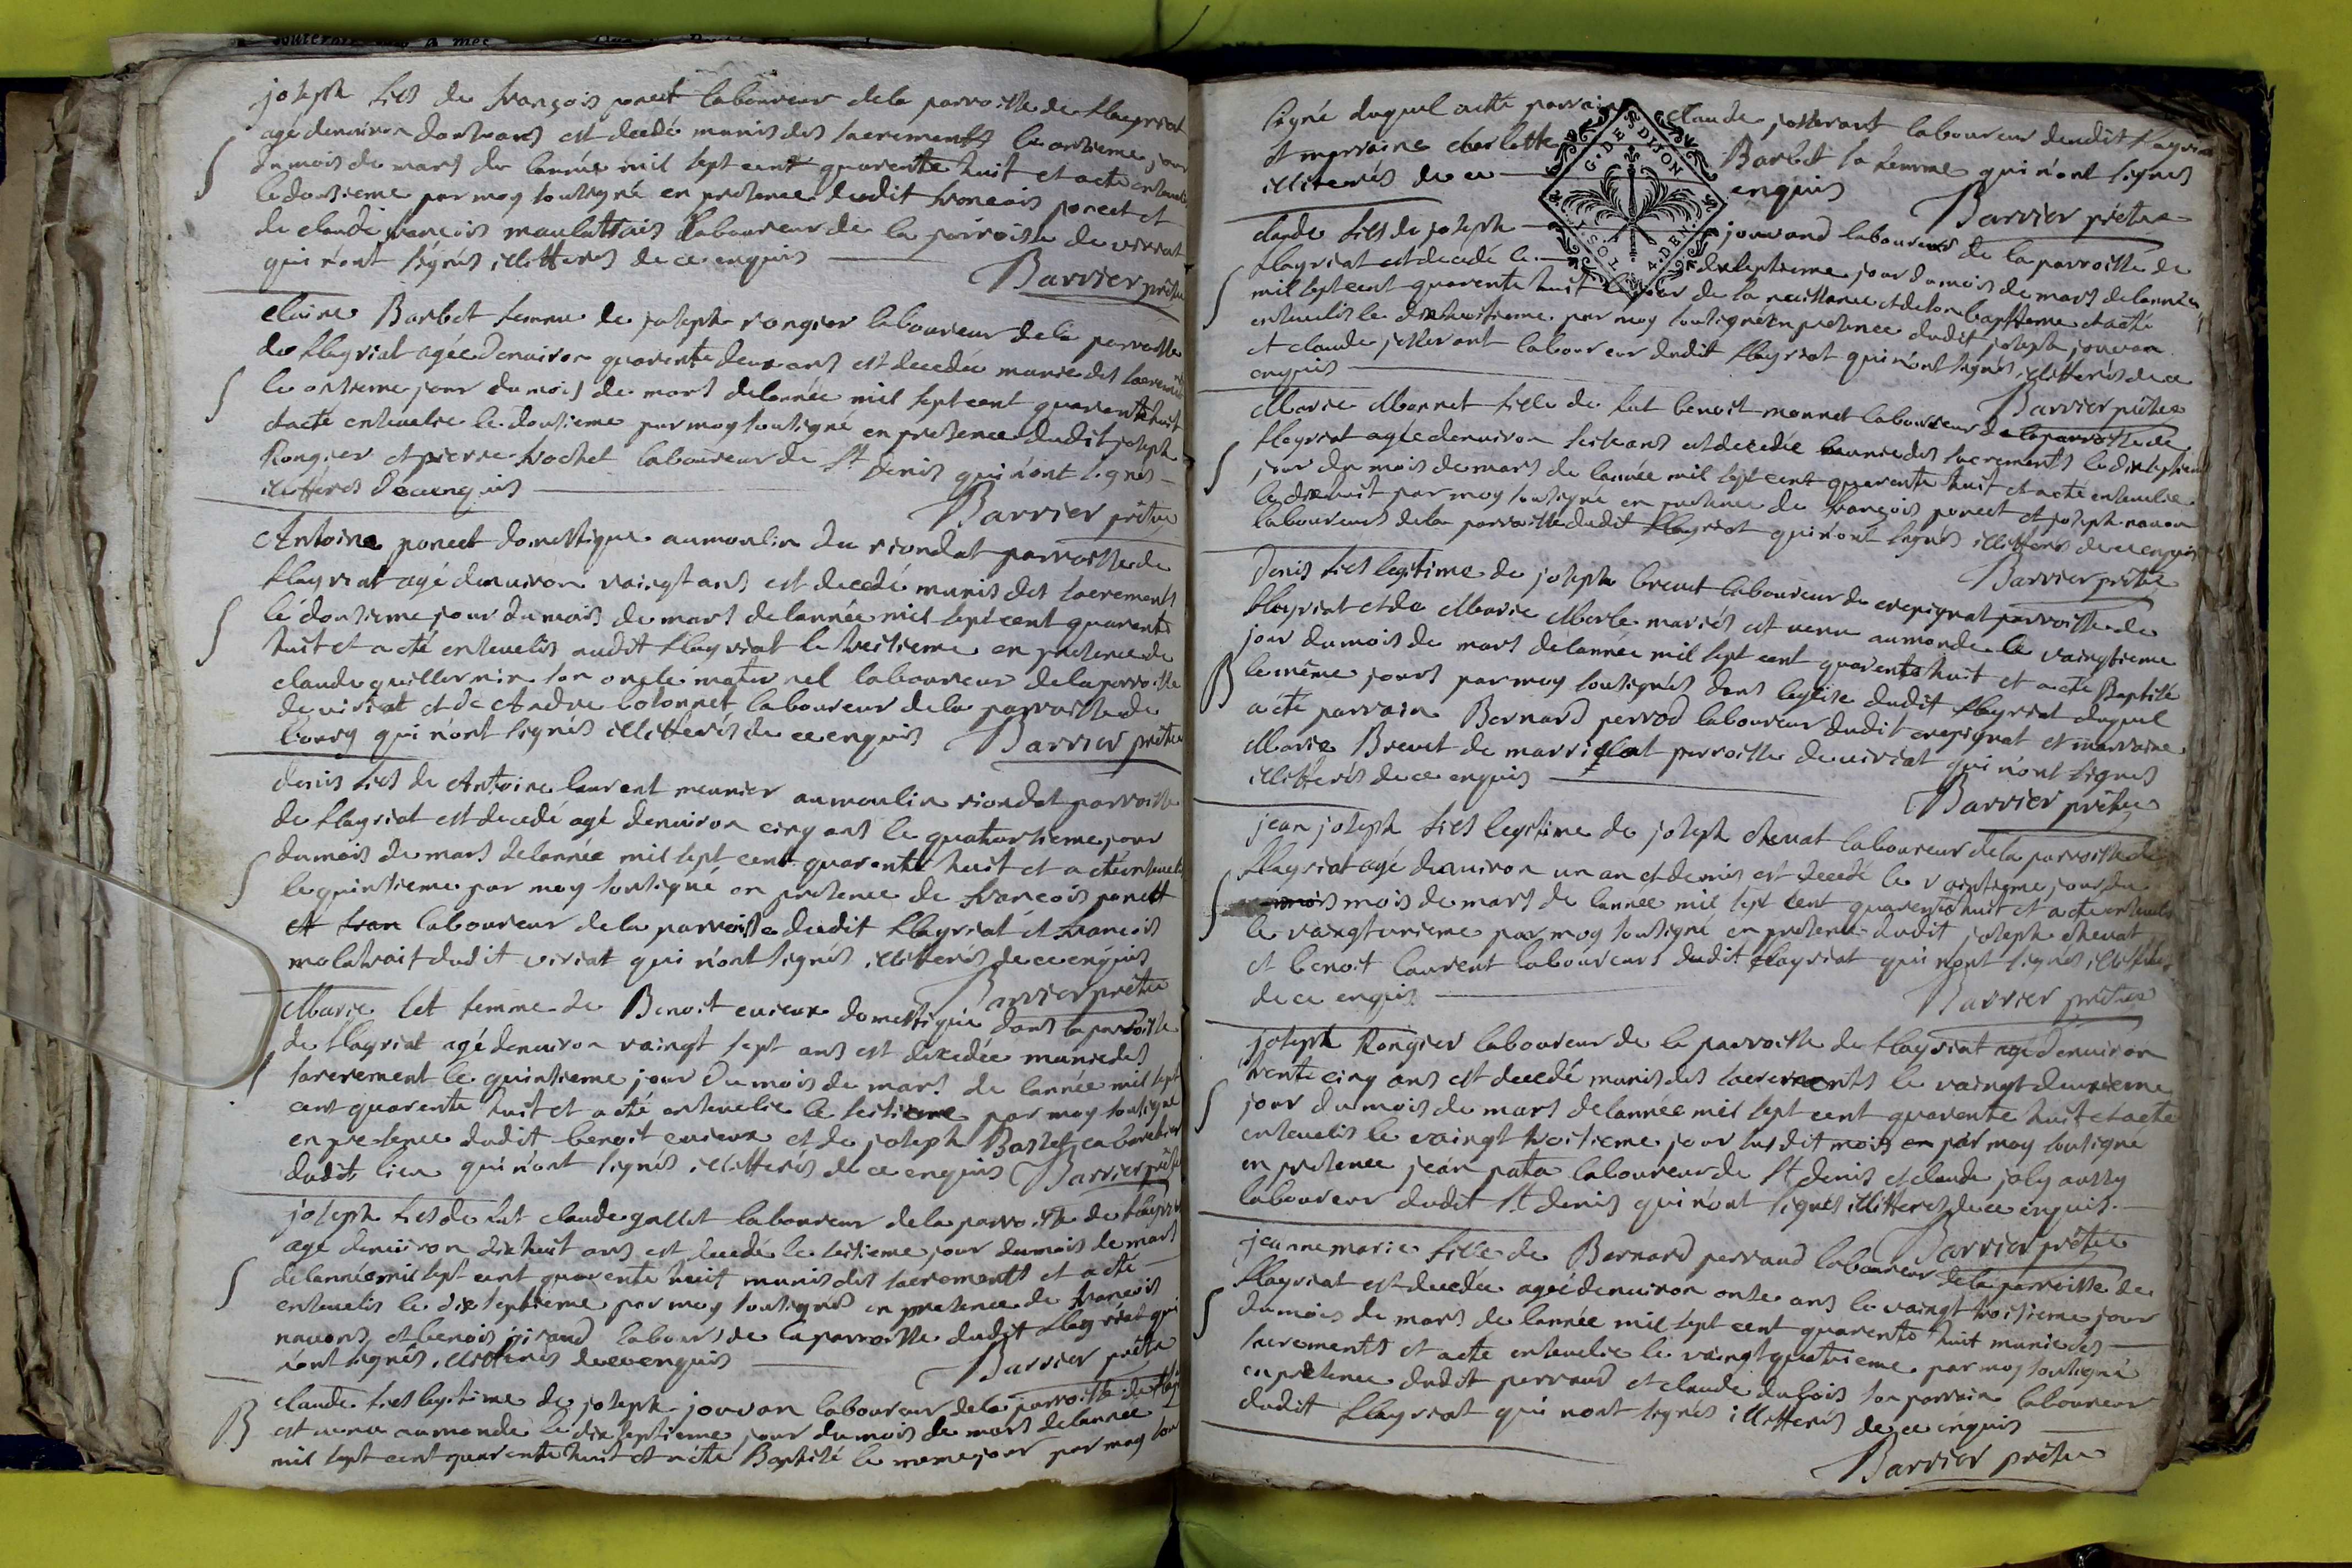 joseph fils de françois poncet laboureur dela parroisse de flayriat
agé denuiron dousans est decedé munis des sacrements le onsieme jour
du mois de mars de lannée mil sept cent quarente huit et acté enseuelis
le dousieme par moy soussigné en presence dudit francois poncet et
de claude francois maulattrais laboureur de la parroisse de viriat
qui n'ont signés illitteres de ce enquis
Barrier prêtre
claine Barbet femme de joseph rongier laboureur dela parroisse
de flayriat agée denuiron quarente deux ans est decedée munie des sacrements
le onsieme jour du mois de mars delannée mil sept cent quarente huit
et acté enseuelie le dousieme par moy soussigné en presence dudit joseph
Rongier et pierre frochet laboureur de St denis qui n'ont signés
illitterés de ce enquis
Barrier prêtre
Antoine poncet domestique au moulin du riondat parroisse de
flayriat agé denuiron vaingt ans est decedé munis des sacrements
lé dousieme jour du mois de mars delannée mil sept cent quarente
huit et a cté enseuelis audit flayriat le treisieme en presence de
claude guillermin son oncle maternel laboureur dela parroisse
de viriat et de Andre bolonnet laboureur dela parroisse de
bourg qui n'ont signés illitterés de ce enquis Barrier prêtre
denis fils de Antoine laurent meunier au moulin riondat parroisse
de flayriat est decedé agé denuiron cinq ans le quatorsieme jour
du mois de mars delannée mil sept cent quarente huit et a cté enseuelis
le quinsieme par moy soussigné en presence de francois poncet
et fran laboureur de la parroisse dudit flayriat et francois
malatrait dudit viriat qui n'ont signés illitterés de ce enquis
Barrier prêtre
Marie fet femme de Benoit curieux domestique dans la parroisse
de flayriat agé denuiron vaingt sept ans est decedée munie des
sacrement le quinsieme jour du mois de mars de lannée mil sept
cent quarente huit et a cté enseuelie le seisieme par moy soussigné
en presence dudit benoit curieux et de joseph Barbet cabaretier
dudit lieu qui n'ont signés illitterés de ce enquis Barrier prêtre
joseph fils de fut claude gallet laboureur dela parroisse de flayriat
age denuiron dix huit ans est decedé le seisieme jour du mois de mars
delannée mil sept cent quarente huit munis des sacrements et a cté
enseuelis le dix septieme par moy soussigné en presence de francois
nauons et benois giraud labours de la parroisse dudit flayriat qui
n'ont signés illitterés de ce enquis
Barrier prêtre
claude fils legitime de joseph jouvan laboureur dela parroisse de flayriat
est venu au monde le dix septieme jour du mois de mars delannée
mil sept cent quarente huit et acté Baptisé le meme jour par moy sous
signé duquel acté parrain claude josserant laboureur dudit flayriat
et marraine charlette Barbet sa femme qui n'ont signés
illiterés de ce enquis
G. DE DIJON
1. SOL 4. DEN.
Barrier prêtre
claude fils de joseph jouvand laboureur de la parroisse de
flayriat est decedé le dix septieme jour du mois de mars delannée
mil sept cent quarente huit le jour de la naissance et de son baptême et acté
enseuelis le dixhuitieme par moy soussigné en presence dudit joseph jouvan
et claude josserant laboureur dudit flayriat qui n'ont signés illitterés de ce
enquis
Barrier prêtre
Marie Monnet fille de fut benoit monnet laboureur de la parroisse de
flayriat agée denuiron seise ans est decedée munie des sacrements le dix septieme
jour du mois de mars de lannée mil sept cent quarente huit et acté enseuelie
le dixhuit par moy soussigné en presence de françois poncet et joseph nauon
laboureurs dela parroisse dudit flayriat qui n'ont signés illitterés de ce enquis
Barrier prêtre
Denis fils legitime de joseph breuet laboureur de crepignat parroisse de
flayriat et de Marie Merle mariés est venu au monde le vaingtieme
jour du mois de mars de lannée mil sept cent quarente huit et acté Baptisé
le même jours par moy soussignés dans leglise dudit flayriat duquel
acté parrain Bernard perrod laboureur dudit crepignat et marraine
Marie Breuet de marriglat parroisse de viriat qui n'ont signés
illitterés de ce enquis
Barrier prêtre
jean joseph fils legitime de joseph cheuat laboureur dela parroisse de
flayriat agé denuiron un an et demis est decedé le vaintieme jour du
mois mois de mars de lannée mil sept cent quarente huit et acté enseuelis
le vaingtunieme par moy soussigné en presence dudit joseph cheuat
et benoit laurent laboureurs dudit flayriat qui n'ont signés illitterés
de ce enquis
Barrier prêtre
joseph Rongier laboureur de la parroisse de flayriat agé denuiron
trente cinq ans est decedé munis des sacrements le vaingt deuxieme
jour du mois de mars delannée mil sept cent quarente huit et acté
enseuelis le vaingt troisieme jour susdit mois en par moy soussigné
en presence jean pata laboureur de St denis et claude joly aussy
laboureur dudit St denis qui n'ont signés illitterés de ce enquis.
Barrier prêtre
jeanne marie fille de Bernard perraud laboureur dela parroisse de
flayriat est decedée agée denuiron onse ans le vaingt troisieme jour
du mois de mars de lannée mil sept cent quarente huit munie des
sacrements et acté enseuelie le vaingt quatrieme par moy soussigné
en presence dudit perraud et claude dubois son parrain laboureur
dudit flayriat qui n'ont signés illitterés de ce enquis
Barrier prêtre